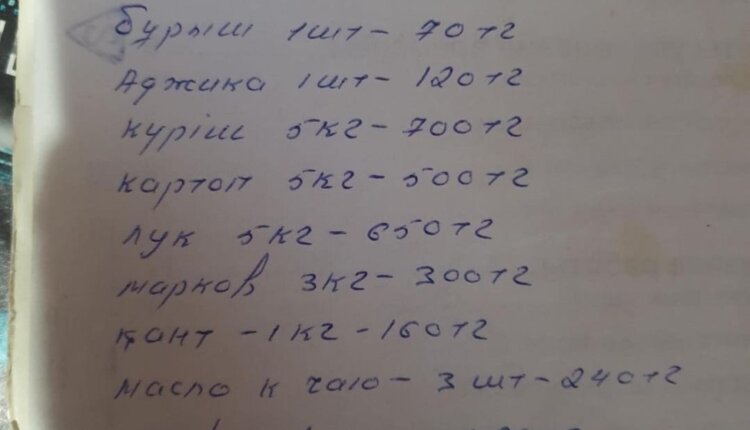 бурыш 1шт - 70тг
Аджика 1шт - 120тг
күріш 5кг - 700тг
картоп 5кг - 500тг
лук 5кг - 650тг
марков 3кг - 300тг
қант - 1кг - 160тг
масло к чаю - 3шт - 240тг